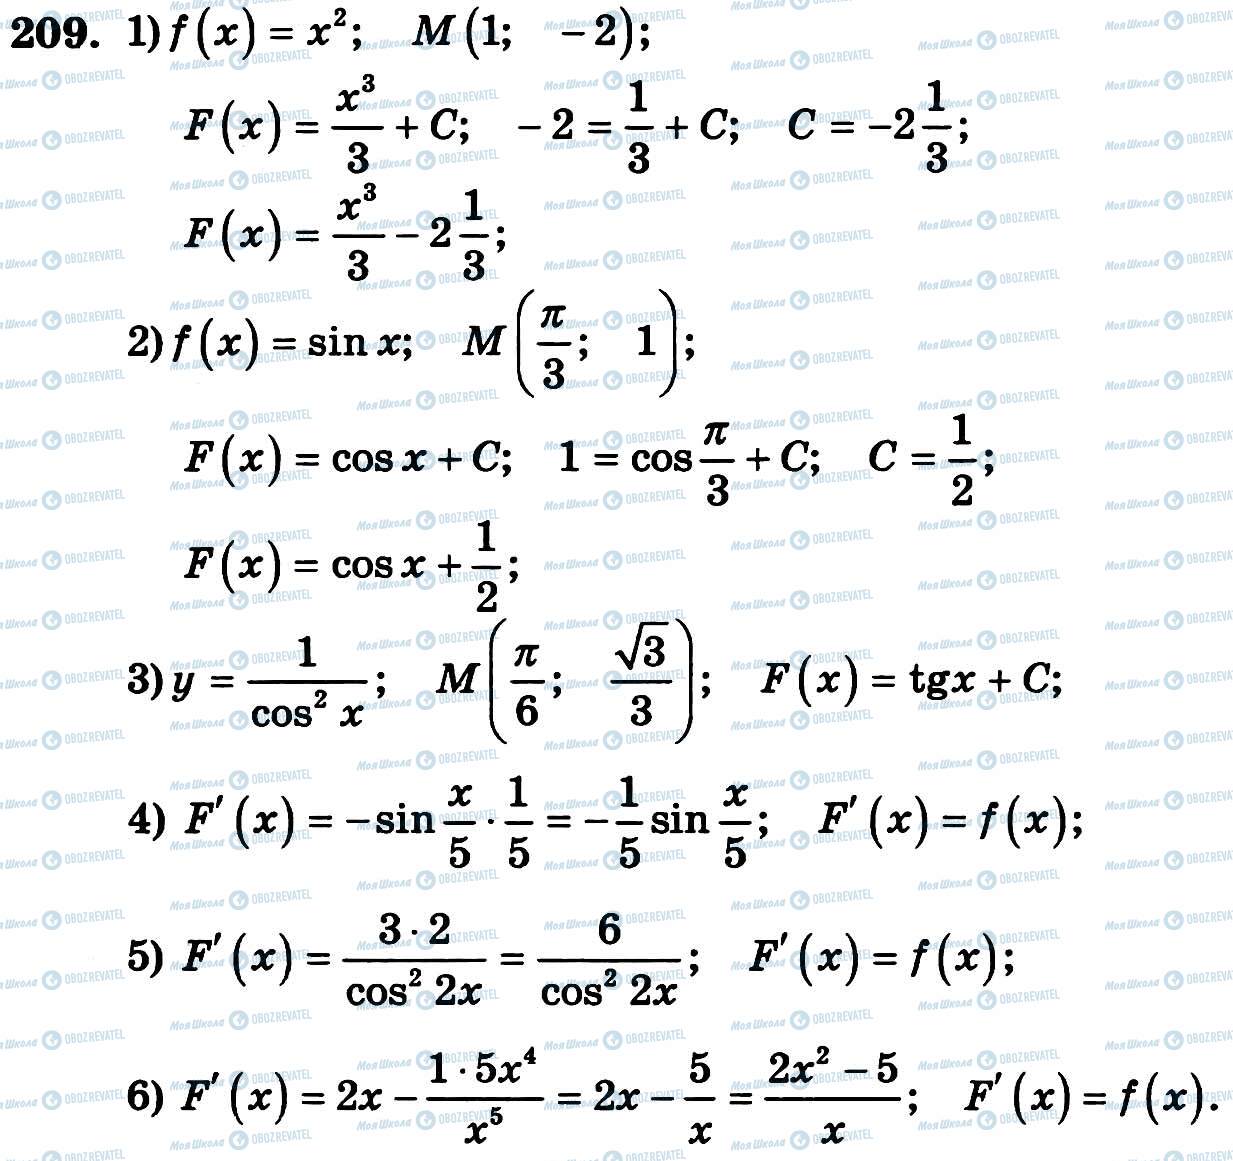 209. 1) f(x) = x²; M(1; −2);
F(x) = x³/3 + C; −2 = 1/3 + C; C = −2 1/3;
F(x) = x³/3 − 2 1/3;
2) f(x) = sin x; M(π/3; 1);
F(x) = cos x + C; 1 = cos π/3 + C; C = 1/2;
F(x) = cos x + 1/2;
3) y = 1/cos² x; M(π/6; √3/3); F(x) = tgx + C;
4) F′(x) = −sin x/5 · 1/5 = −1/5 sin x/5; F′(x) = f(x);
5) F′(x) = 3·2/cos² 2x = 6/cos² 2x; F′(x) = f(x);
6) F′(x) = 2x − 1·5x⁴/x⁵ = 2x − 5/x = 2x² − 5/x; F′(x) = f(x).
МояШкола OBOZREVATEL